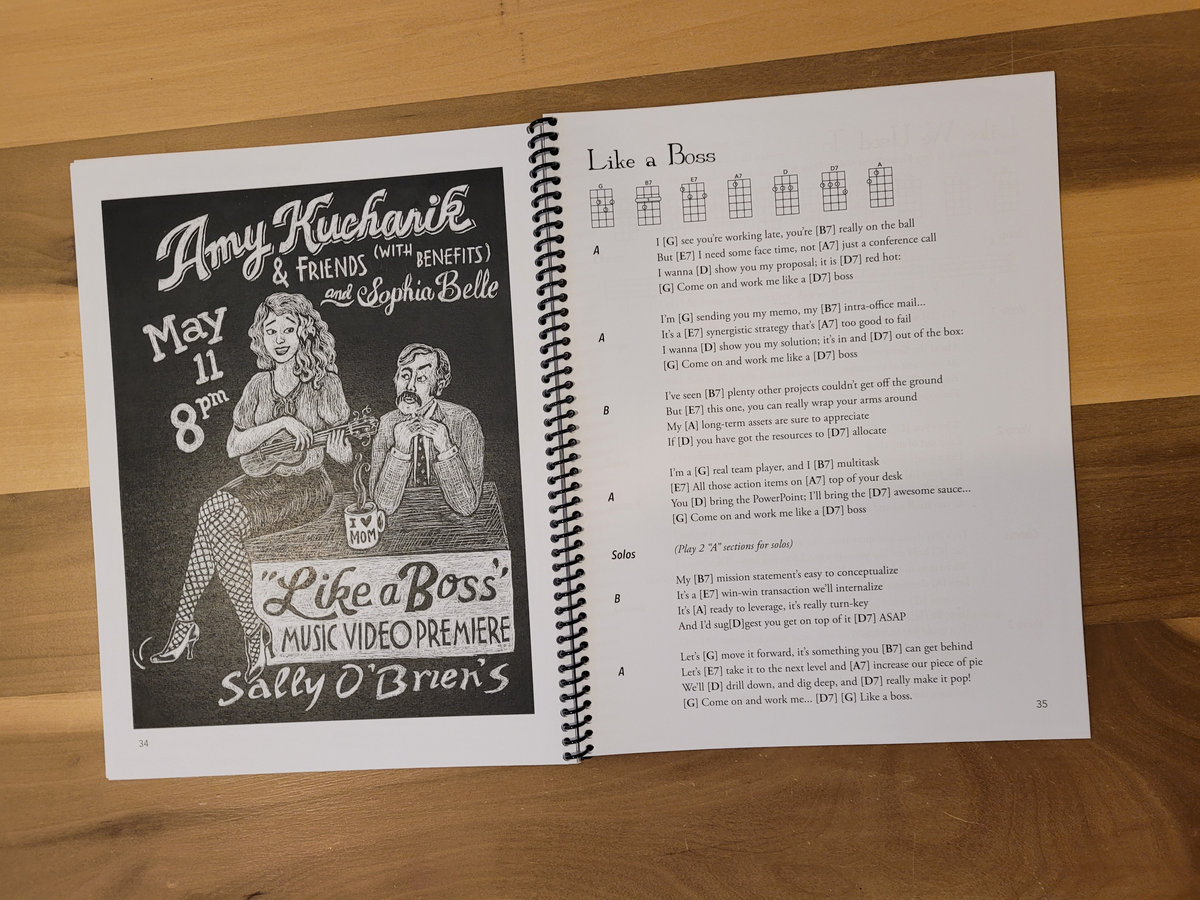 Amy Kucharik
& FRIENDS (WITH BENEFITS)
and Sophia Belle
May
11
8pm
I ♥
MOM
"Like a Boss"
MUSIC VIDEO PREMIERE
Sally O'Brien's
34
Like a Boss
G B7 E7 A7 D D7 A
A
I [G] see you're working late, you're [B7] really on the ball
But [E7] I need some face time, not [A7] just a conference call
I wanna [D] show you my proposal; it is [D7] red hot:
[G] Come on and work me like a [D7] boss
A
I'm [G] sending you my memo, my [B7] intra-office mail...
It's a [E7] synergistic strategy that's [A7] too good to fail
I wanna [D] show you my solution; it's in and [D7] out of the box:
[G] Come on and work me like a [D7] boss
B
I've seen [B7] plenty other projects couldn't get off the ground
But [E7] this one, you can really wrap your arms around
My [A] long-term assets are sure to appreciate
If [D] you have got the resources to [D7] allocate
A
I'm a [G] real team player, and I [B7] multitask
[E7] All those action items on [A7] top of your desk
You [D] bring the PowerPoint; I'll bring the [D7] awesome sauce...
[G] Come on and work me like a [D7] boss
Solos
(Play 2 "A" sections for solos)
B
My [B7] mission statement's easy to conceptualize
It's a [E7] win-win transaction we'll internalize
It's [A] ready to leverage, it's really turn-key
And I'd sug[D]gest you get on top of it [D7] ASAP
A
Let's [G] move it forward, it's something you [B7] can get behind
Let's [E7] take it to the next level and [A7] increase our piece of pie
We'll [D] drill down, and dig deep, and [D7] really make it pop!
[G] Come on and work me... [D7] [G] Like a boss.
35